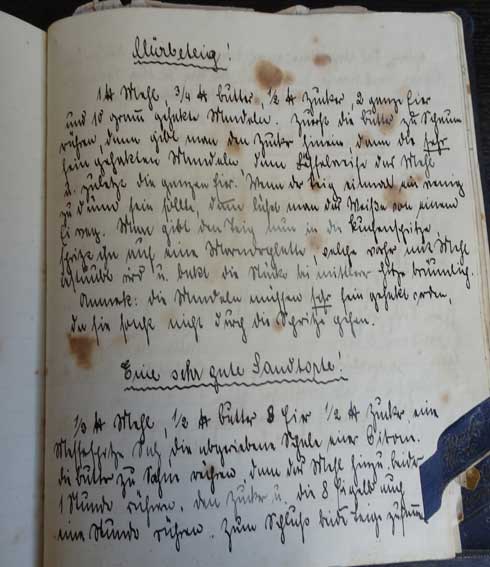 Mürbeteig!
1 ℔ Mehl, 3/4 ℔ Butter, 1/2 ℔ Zucker, 2 ganze Eier
und 10 gramm gehackte Mandeln. Zuerst die Butter zu Schaum
rühren, dann gibt man den Zucker hinein, dann die sehr
fein gehackten Mandeln dann löffelweise das Mehl
u. zuletzt die ganzen Eier. Wenn der Teig einmal ein wenig
zu dünn sein sollte, dann läßt man das Weiße von einem
Ei weg. Man gibt den Teig nun in die Kuchenspritze,
spritze ihn auf eine Marmorplatte, welche vorher mit Mehl
bestäubt wird u. backt die Stücke bei mittlerer Hitze bräunlich.
Anmerk: die Mandeln müssen sehr fein gehackt werden,
da sie sonst nicht durch die Spritze gehen.
Eine sehr gute Sandtorte!
1/2 ℔ Mehl, 1/2 ℔ Butter 8 Eier 1/2 ℔ Zucker eine
Messerspitze Salz, die abgeriebene Schale einer Citrone.
die Butter zu Sahne rühren, dann das Mehl hinzu, beides
1 Stunde rühren, den Zucker u. die 8 Eigelb auch
eine Stunde rühren. Zum Schluß beide Teige